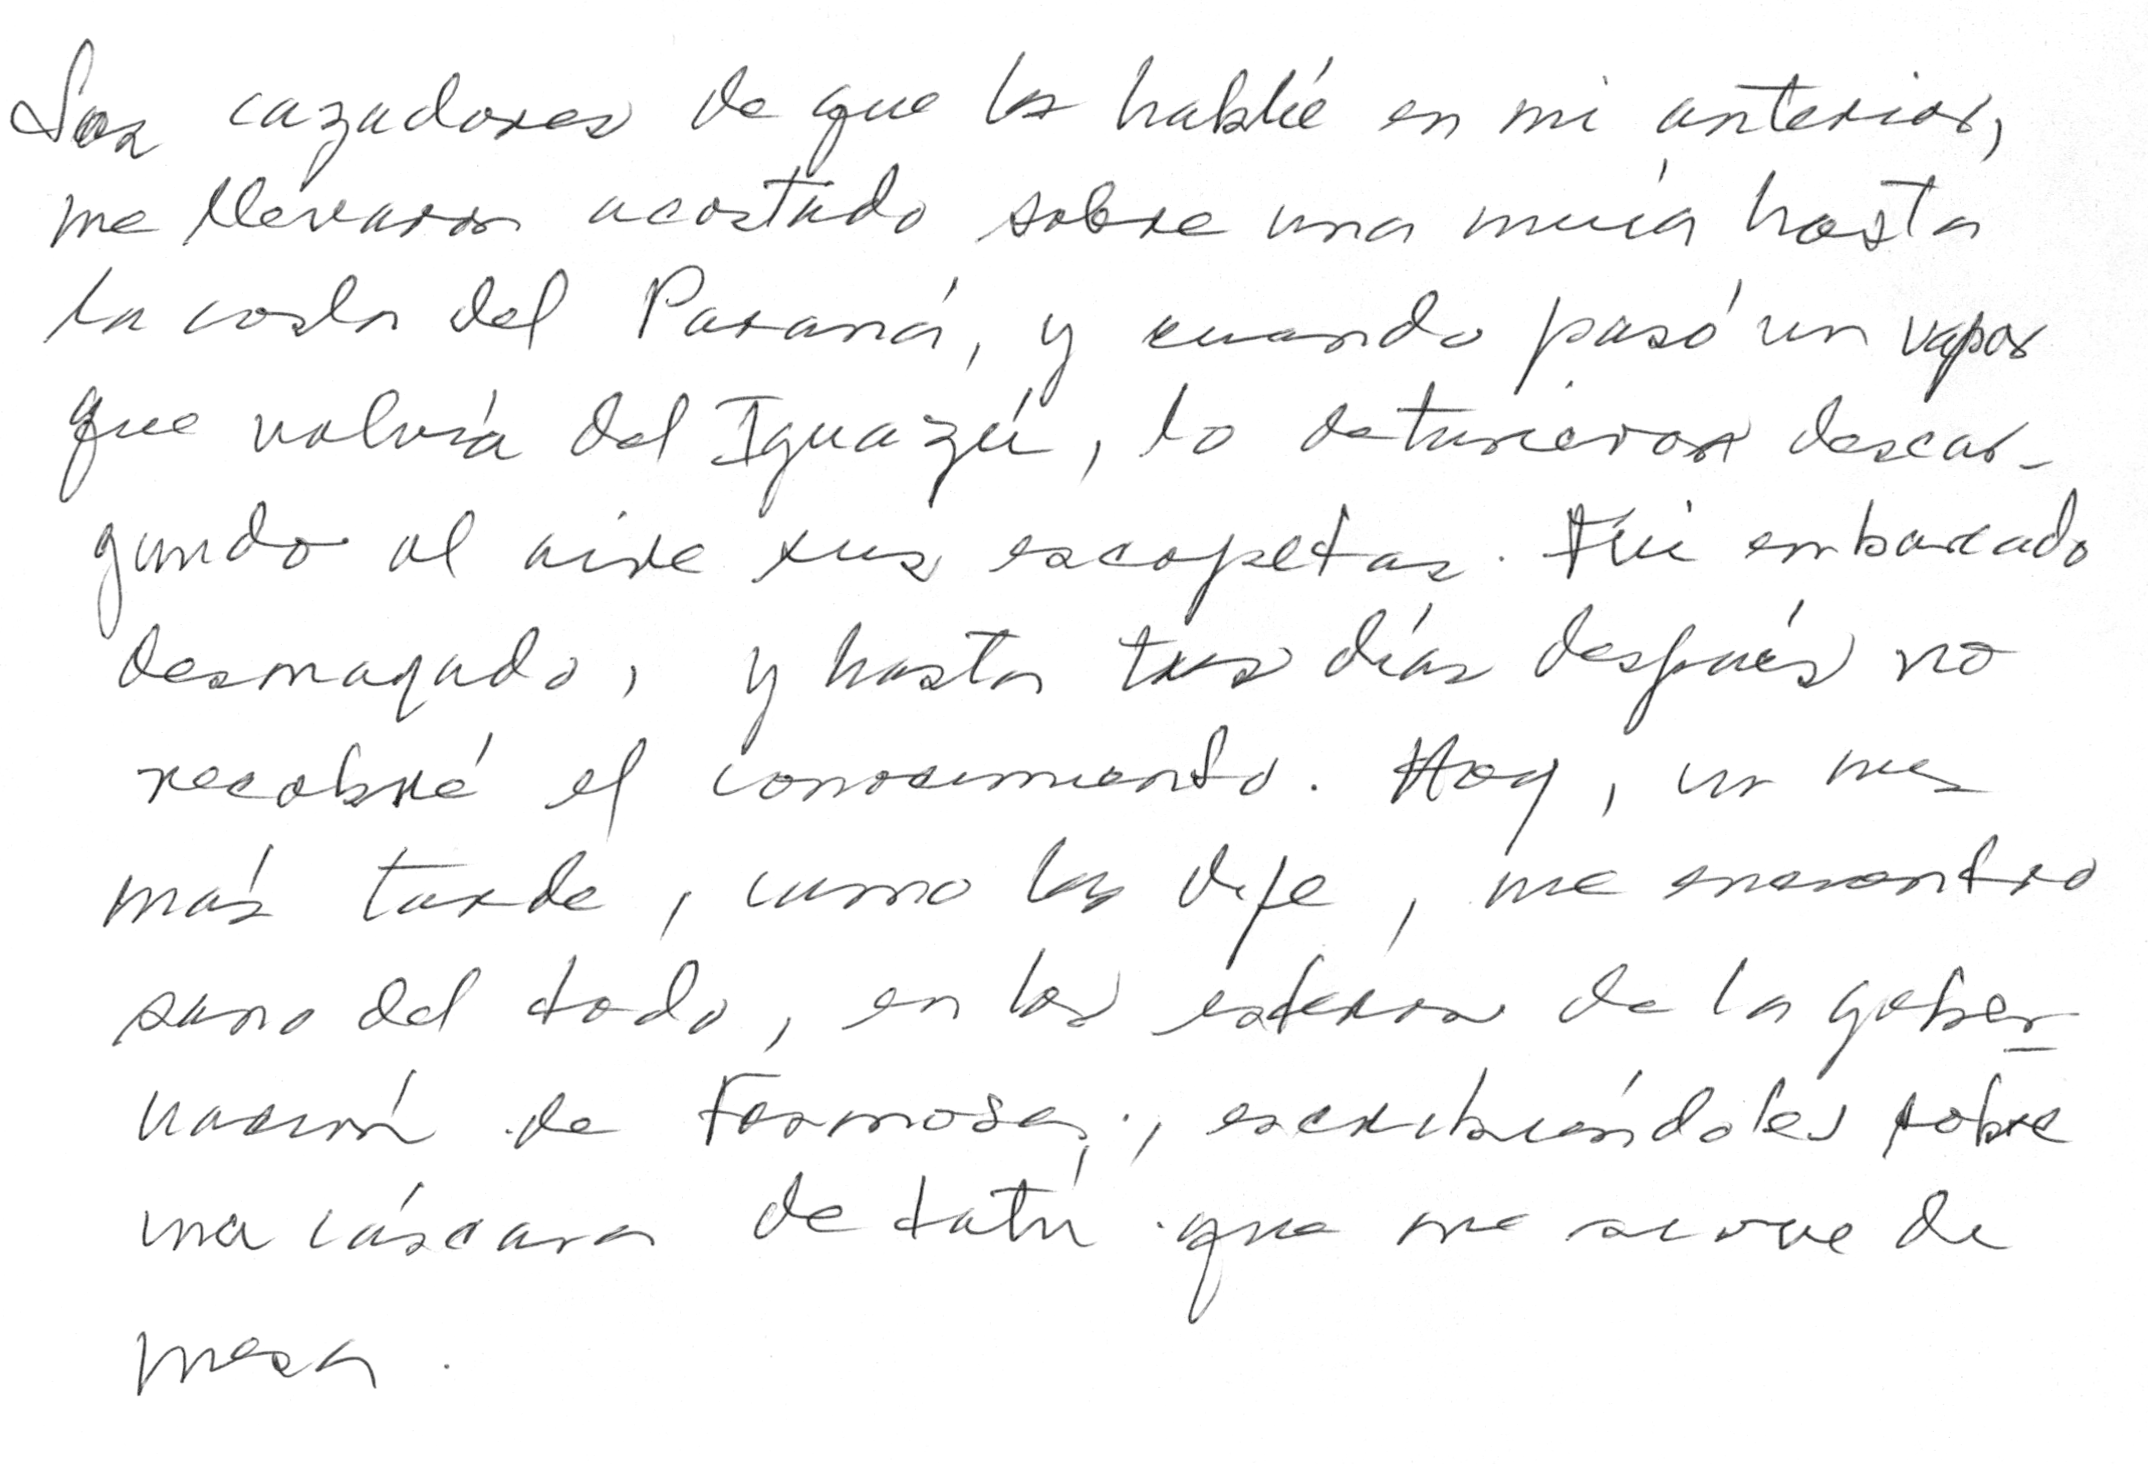 Los cazadores de que les hablé en mi anterior,
me llevaron acostado sobre una mula hasta
la costa del Paraná, y cuando pasó un vapor
que volvía del Iguazú, lo detuvieron descar-
gando al aire sus escopetas. Fuí embarcado
desmayado, y hasta tres días después no
recobré el conocimiento. Hoy, un mes
más tarde, como les dije, me encuentro
sano del todo, en los esteros de la gober-
nación de Formosa, escribiéndoles sobre
una cáscara de tatú que me sirve de
mesa.